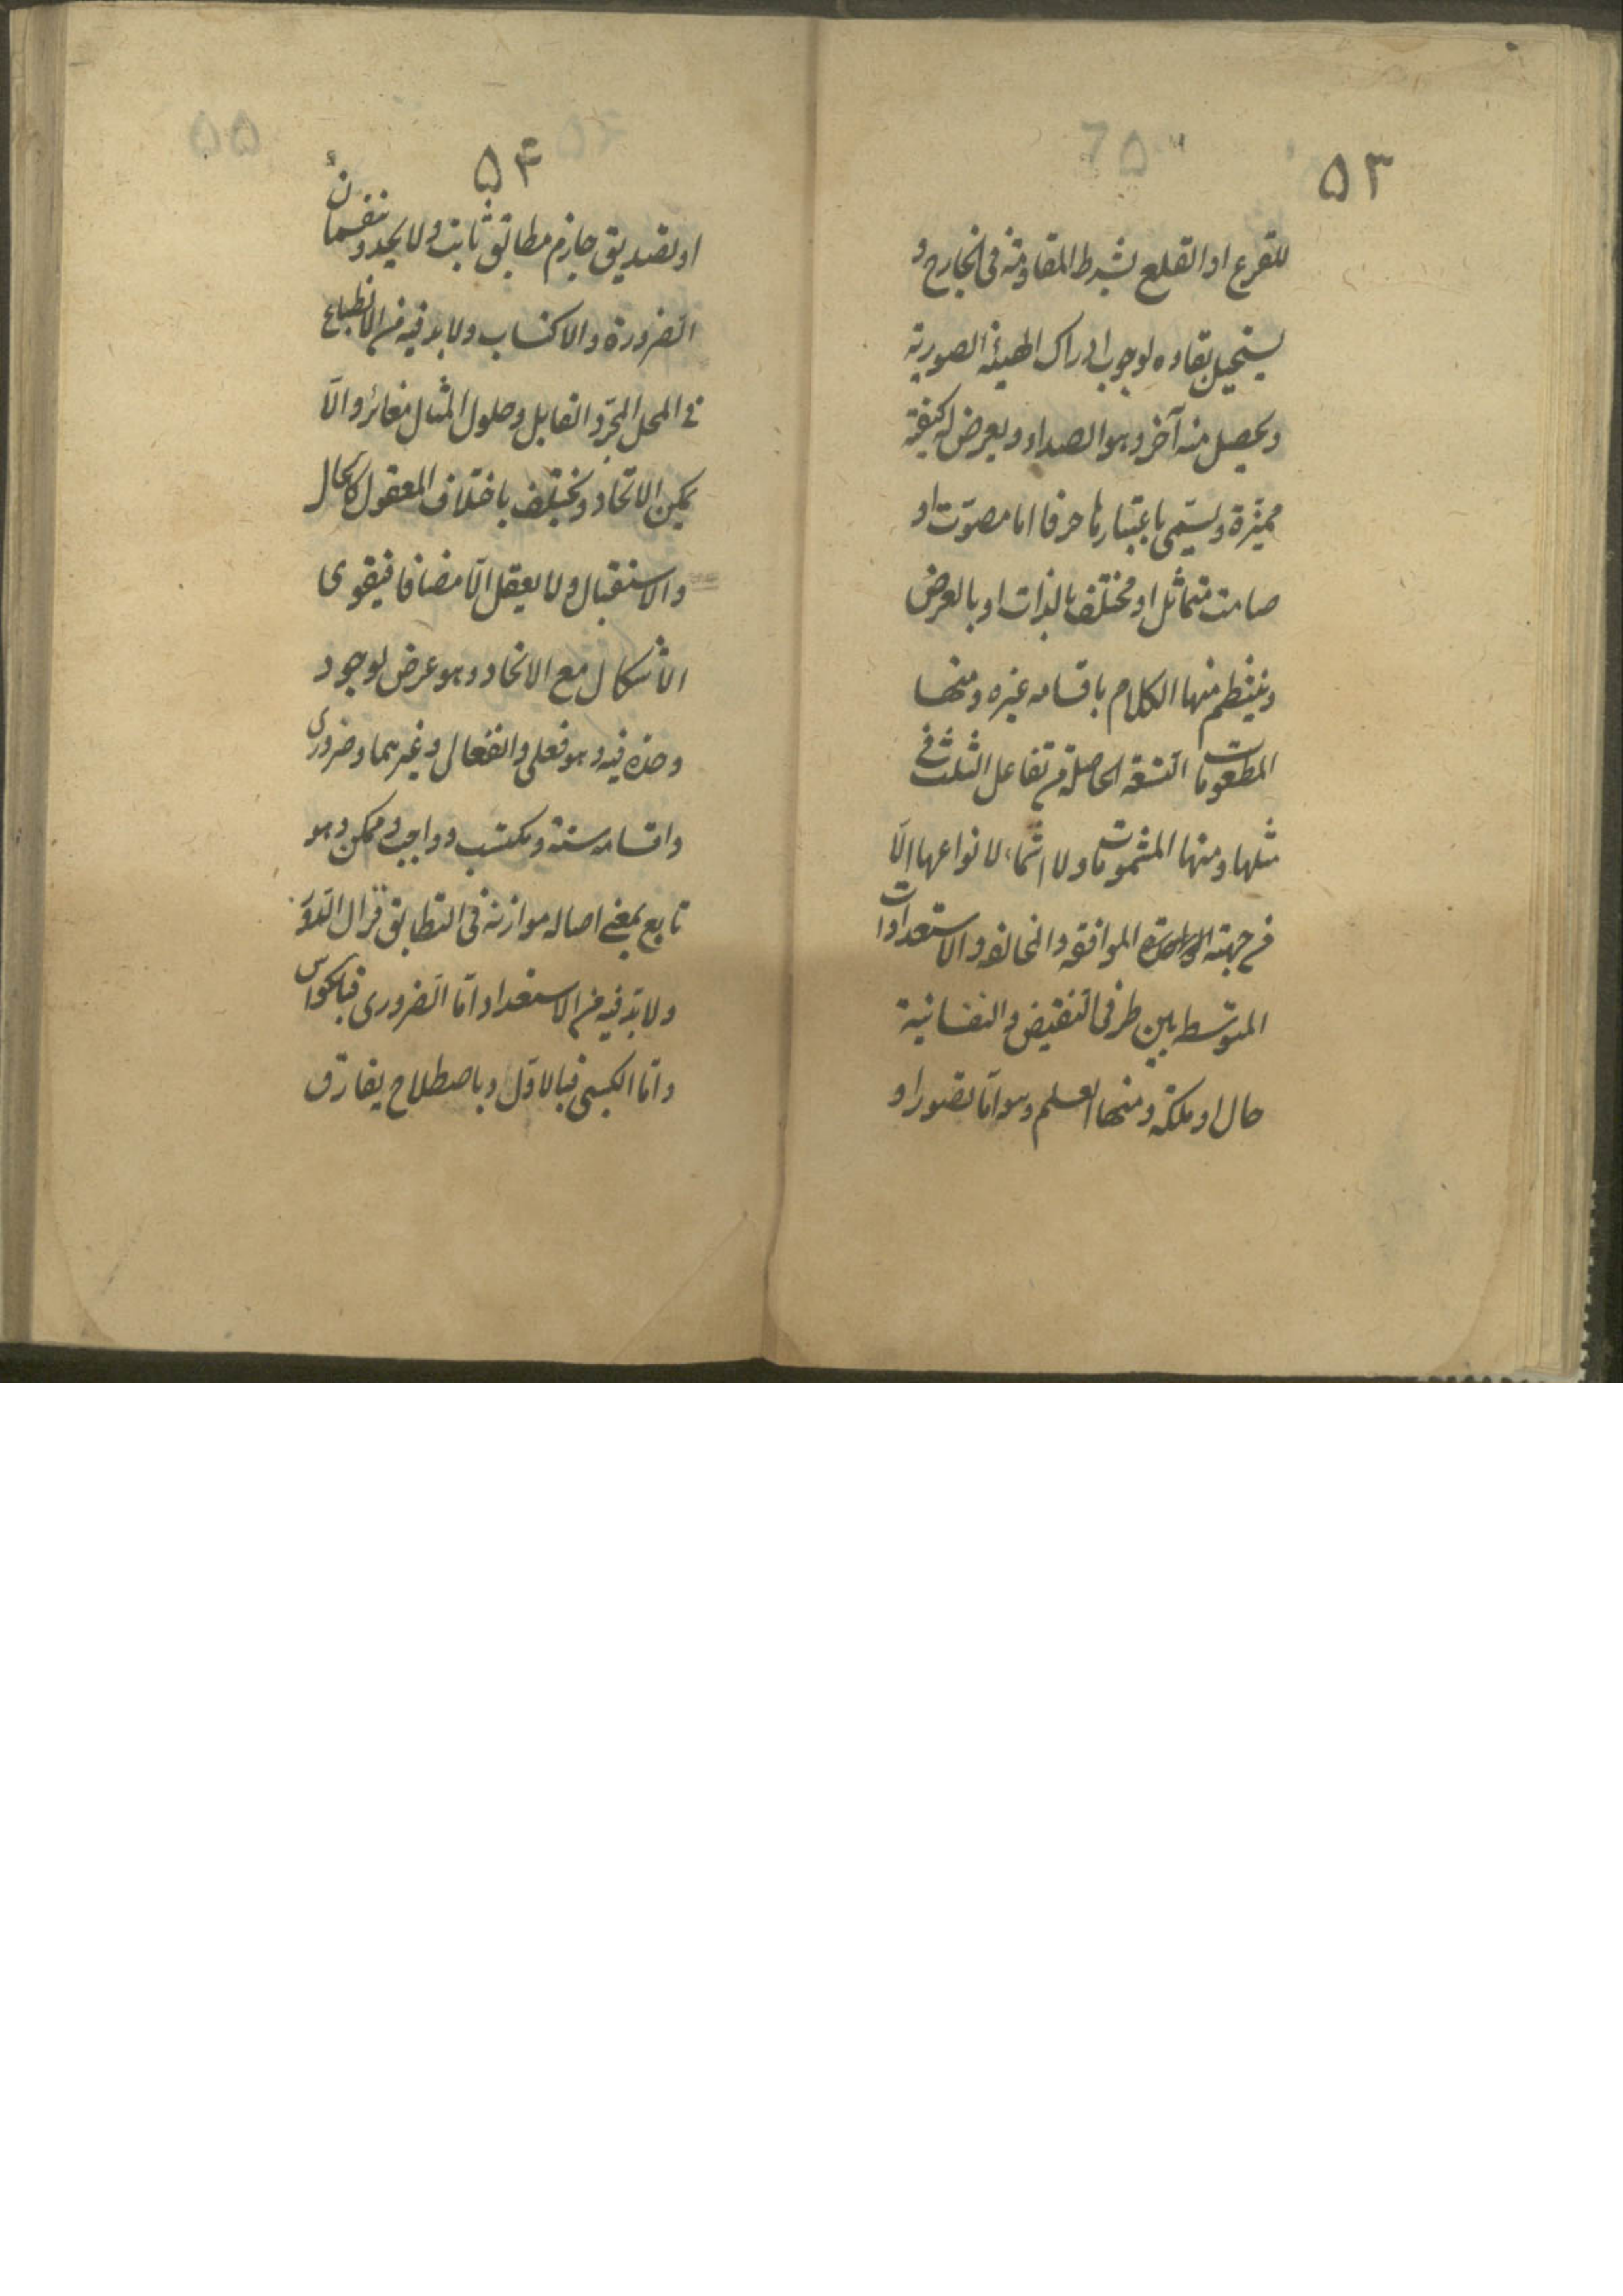 ۵۳
للقرع او القلع بشرط المقاومة فى الخارج و
يستحيل بقاوه لوجوب ادراك الهيئة الصورية
و يحصل منه آخر و هو الصداء و يعرض له كيفية
مميزة و يسمى باعتبارها حرفا اما مصوت او
صامت متماثل او مختلف بالذات او بالعرض
و ينتظم منها الكلام باقسامه غيره و منها
المطعومات التسعة الحاصلة من تفاعل الثلث فى
مثلها و منها المشمومات و لا اسماء لانواعها الّا
من جهة الموافقه و المخالفه و الاستعدادات
المتوسطه بين طرفى النقيض و النفسانية
حال او ملكة و منها العلم و هو امّا تصور او
۵۴
او تصديق جازم مطابق ثابت و لا يحد و ينقسمان
الضرورة و الاكتساب و لا بد فيه من الانطباع
فى المحل المجرّد القابل و حلول المثال مغائر و الّا
يمكن الاتحاد و يختلف باختلاف المعقول كالحال
و الاستقبال و لا يعقل الّا مضافا فيقوى
الاشكال مع الاتحاد و هو عرض لوجود
حده فيه و هو فعلى و انفعالى و غيرهما و ضرورى
و اقسامه ستة و مكتسب و واجب و ممكن و هو
تابع بمعنى اصاله موازنه فى التطابق فزال الدّور
و لا بدّ فيه من الاستعداد امّا الضرورى فبالحواس
و امّا الكسبى فبالاوّل و باصطلاح يفارق
۵۵